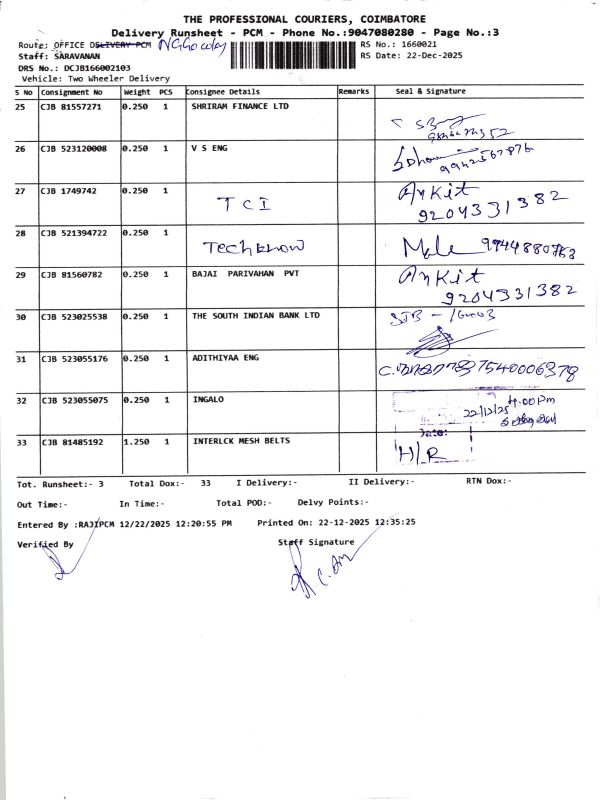 THE PROFESSIONAL COURIERS, COIMBATORE
Delivery Runsheet - PCM - Phone No.:9047080280 - Page No.:3
Route: OFFICE DELIVERY PCM
RS No.: 1660021
Staff: SARAVANAN
RS Date: 22-Dec-2025
DRS No.: DCJB166002103
Vehicle: Two Wheeler Delivery
S No Consignment No Weight PCS Consignee Details Remarks Seal & Signature
25 CJB 81557271 0.250 1 SHRIRAM FINANCE LTD
26 CJB 523120008 0.250 1 V S ENG
27 CJB 1749742 0.250 1 TCI Ankit
9204331382
28 CJB 521394722 0.250 1 Techknow
29 CJB 81560782 0.250 1 BAJAI PARIVAHAN PVT Ankit
9204331382
30 CJB 523025538 0.250 1 THE SOUTH INDIAN BANK LTD
31 CJB 523055176 0.250 1 ADITHIYAA ENG 7540006378
32 CJB 523055075 0.250 1 INGALO 4.00 Pm
22/12/25
Date:
33 CJB 81485192 1.250 1 INTERLCK MESH BELTS H/R
Tot. Runsheet:- 3 Total Dox:- 33 I Delivery:- II Delivery:- RTN Dox:-
Out Time:- In Time:- Total POD:- Delvy Points:-
Entered By :RAJIPCM 12/22/2025 12:20:55 PM Printed On: 22-12-2025 12:35:25
Verified By Staff Signature